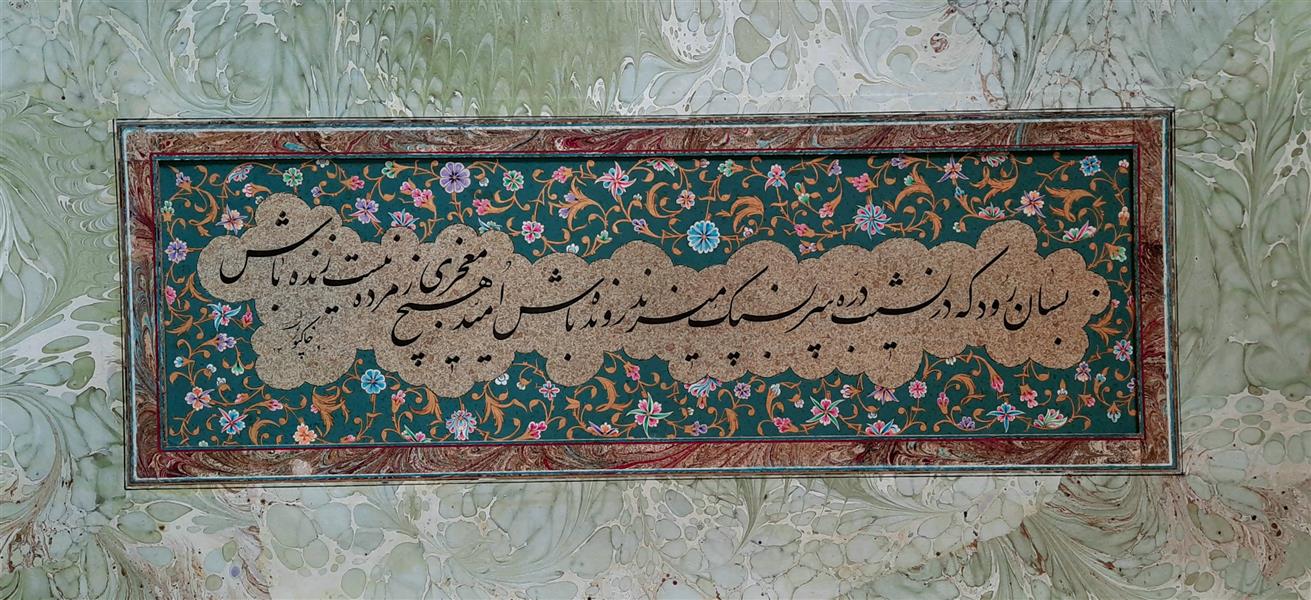 بسان رود که در نشیب دره سر به سنگ میزند رونده باش امید هیچ معجزی ز مرده نیست زنده باش